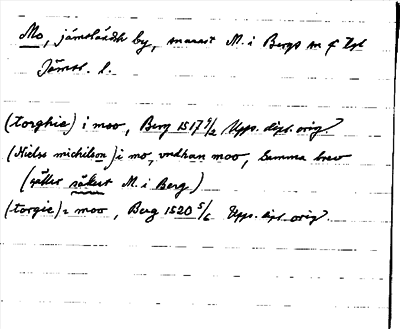 Mo, jämtländsk by, snarast M. i Bergs sn o f tgl
Jämtl. l.
(torghie) i moo, Berg 1517 9/2 Upps. dipl. orig.
(Nielss michilson) i mo, vndhan moo, Samma brev
(gäller säkert M. i Berg)
(torgie) i moo, Berg 1520 5/6 Upps. dipl. orig.